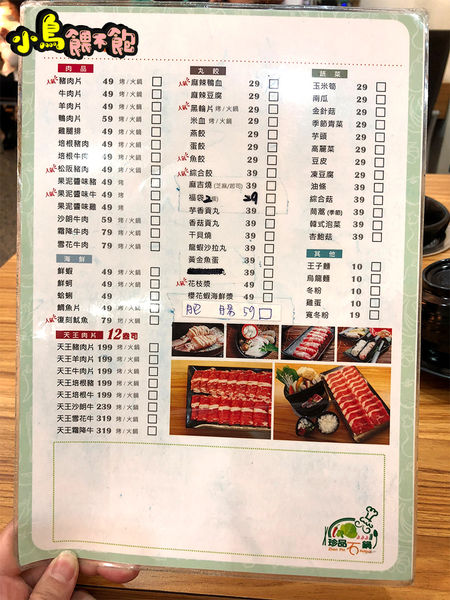 小鳥餵不飽
肉品
人氣 豬肉片 49 烤/火鍋
牛肉片 49 烤/火鍋
羊肉片 49 烤/火鍋
鴨肉片 59 烤/火鍋
雞腿排 49 烤/火鍋
培根豬肉 49 烤/火鍋
培根牛肉 49 烤/火鍋
人氣 松阪豬肉 49 烤/火鍋
果泥醬味豬 49 烤
人氣 果泥醬味牛 49 烤
果泥醬味雞 49 烤
沙朗牛肉 59 烤/火鍋
霜降牛肉 79 烤/火鍋
雪花牛肉 79 烤/火鍋
海鮮
鮮蝦 49 烤/火鍋
鮮蚵 49 烤/火鍋
蛤蜊 49 烤/火鍋
鯛魚片 49 烤/火鍋
人氣 復刻魷魚 79 烤/火鍋
天王肉片 12盎司
天王豬肉片 199 烤/火鍋
天王羊肉片 199 烤/火鍋
天王牛肉片 199 烤/火鍋
天王培根豬 199 烤/火鍋
天王培根牛 199 烤/火鍋
天王沙朗牛 239 烤/火鍋
天王雪花牛 319 烤/火鍋
天王霜降牛 319 烤/火鍋
丸餃
人氣 麻辣鴨血 29
麻辣豆腐 29
人氣 黑輪片 烤/火鍋 29
米血 烤/火鍋 29
燕餃 29
蛋餃 29
人氣 魚餃 29
綜合餃 39
麻吉燒 (芝麻/起司) 39
福袋 2 29
芋香貢丸 39
香菇貢丸 39
干貝燒 39
龍蝦沙拉丸 39
黃金魚蛋 39
丸 39
人氣 花枝漿 49
櫻花蝦海鮮漿 49
肥腸 59
蔬菜
玉米筍 29
南瓜 29
金針菇 29
季節青菜 29
芋頭 29
高麗菜 29
豆皮 29
凍豆腐 29
油條 29
綜合菇 39
茼蒿 (季節) 39
韓式泡菜 39
杏鮑菇 39
其他
王子麵 10
烏龍麵 10
冬粉 10
雞蛋 10
寬冬粉 19
珍品石鍋